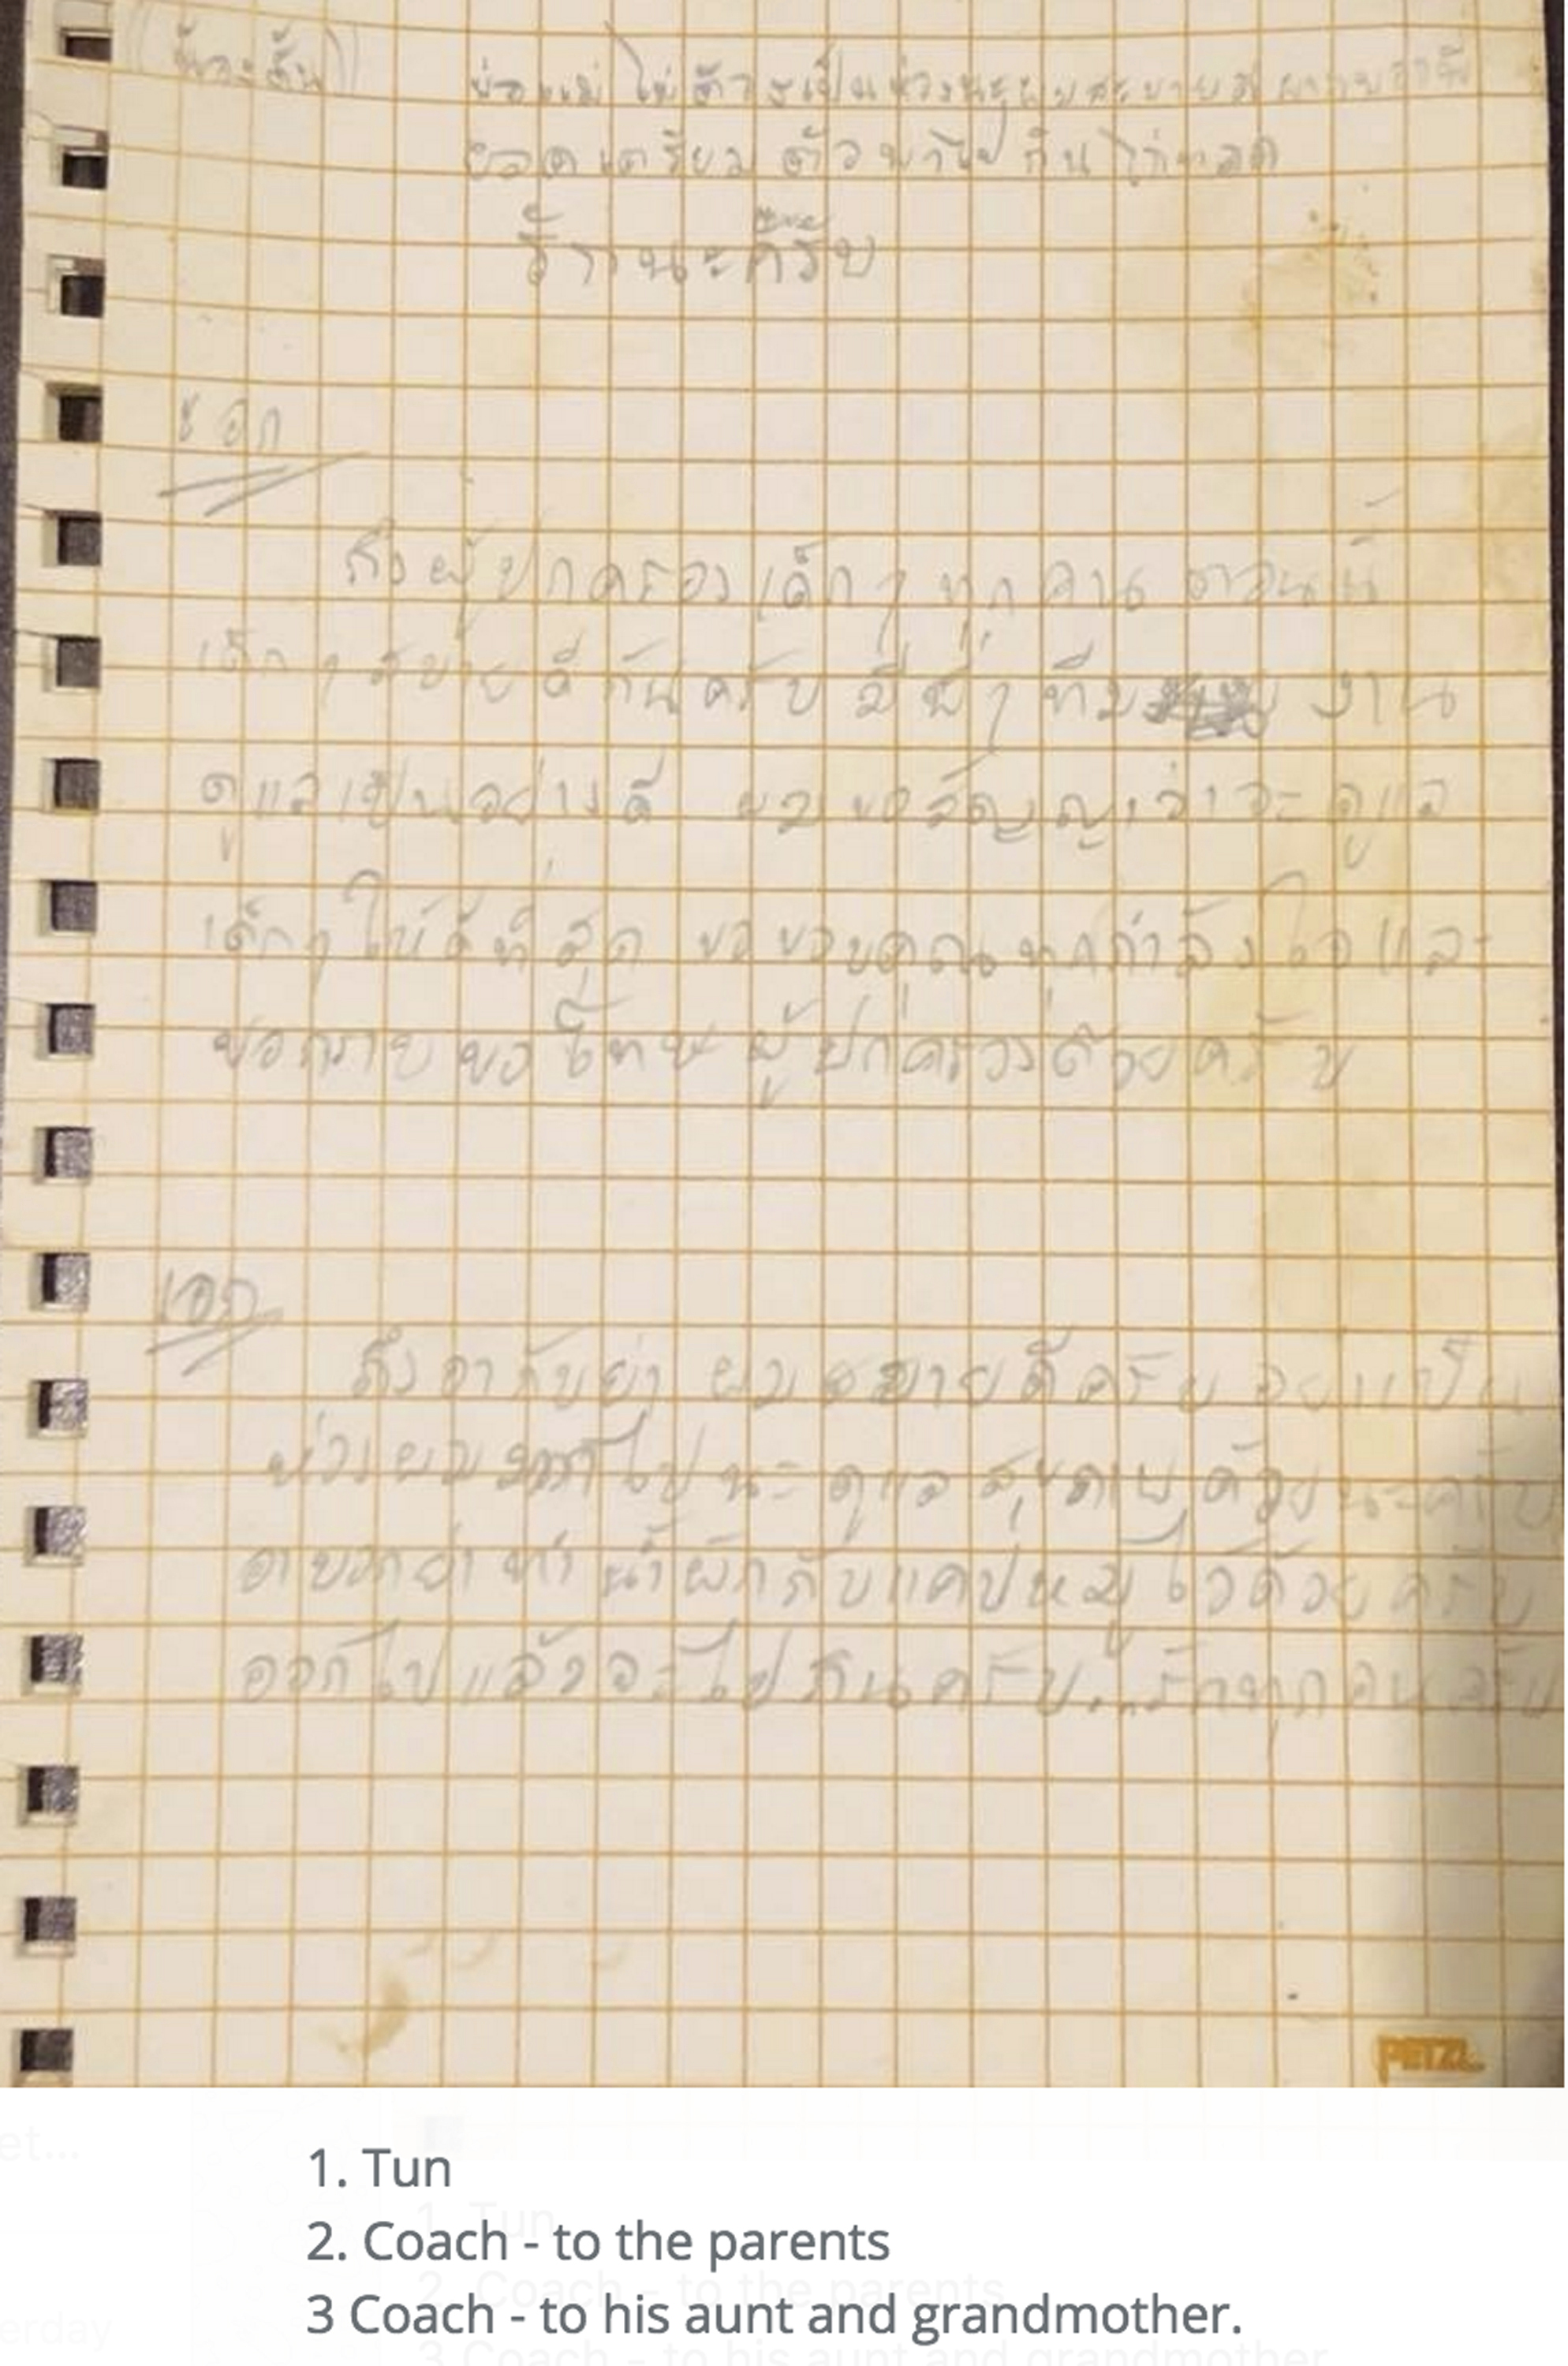 (น้องตั้น) พ่อแม่ ไม่ต้องเป็นห่วงนะผมสบายดี
ยอดเตรียมตัวพาไปกินไก่ทอด
ด้วยนะครับ
ถึงผู้ปกครองเด็กๆ ทุกคน ตอนนี้
เด็กๆ สบายดีกันครับ มีพี่ๆ ทีม งาน
ดูแลเป็นอย่างดี ผมขอสัญญาว่าจะดูแล
เด็กๆ ให้ดีที่สุด ขอขอบคุณทุกกำลังใจและ
ขอกราบขอโทษผู้ปกครองด้วยครับ
เอก
ถึงอากับย่า ผมสบายดีครับ อย่าเป็น
ห่วงผม ไปนะ ดูแลสุขภาพด้วยนะครับ
อาบอกย่าทำน้ำผักกับแคปหมูไว้ด้วยครับ
ออกไปแล้วจะไปกินครับ...รักทุกคนครับ
PETZL
1. Tun
2. Coach - to the parents
3 Coach - to his aunt and grandmother.